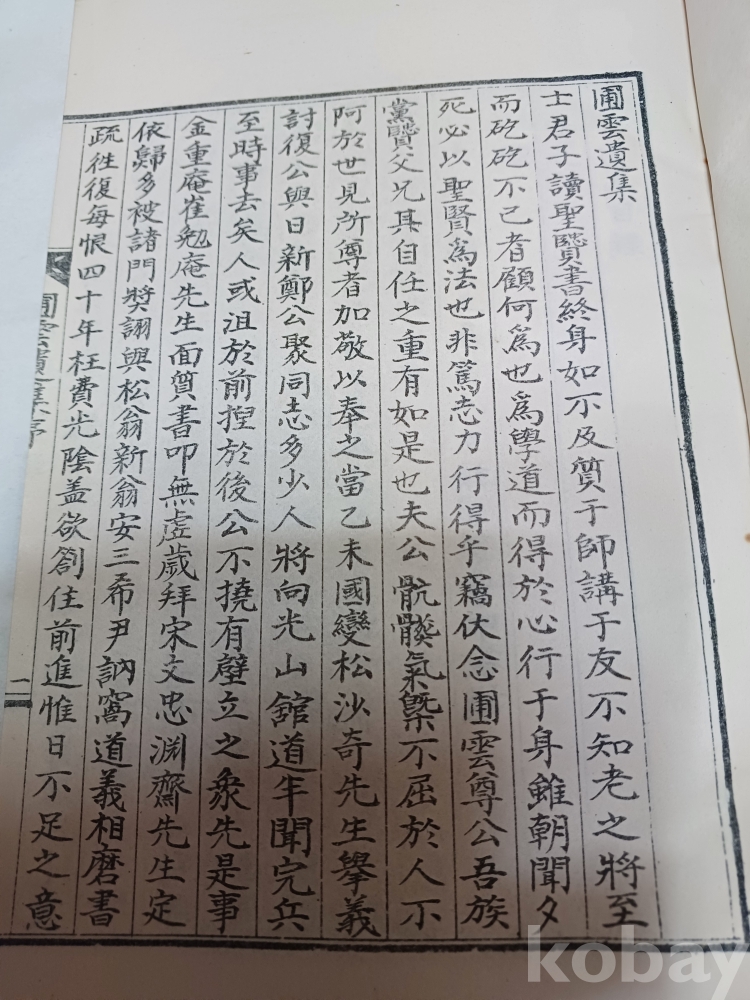 圃雲遺集
士君子讀聖賢書終身如不及質于師講于友不知老之將至
而矻矻不已者顧何爲也爲學道而得於心行于身雖朝聞夕
死必以聖賢爲法也非篤志力行得乎竊伏念圃雲尊公吾族
黨賢父兄其自任之重有如是也夫公骯髒氣槩不屈於人不
阿於世見所尊者加敬以奉之當乙未國變松沙奇先生擧義
討復公與日新鄭公聚同志多少人將向光山館道半聞完兵
至時事去矣人或沮於前揑於後公不撓有壁立之象先是事
金重庵崔勉庵先生面質書叩無虛歲拜宋文忠淵齋先生定
依歸多被諸門奬詡與松翁新翁安三希尹訥窩道義相磨書
疏徃復每恨四十年枉費光陰盖欲劄住前進惟日不足之意
圃雲遺集序
一
kobay